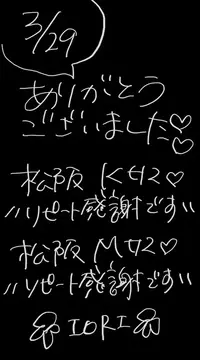 3/29
ありがとう
ございました♡♡
松阪 K様♡
〃リピート感謝です〃
松阪 M様♡
〃リピート感謝です〃
IORI